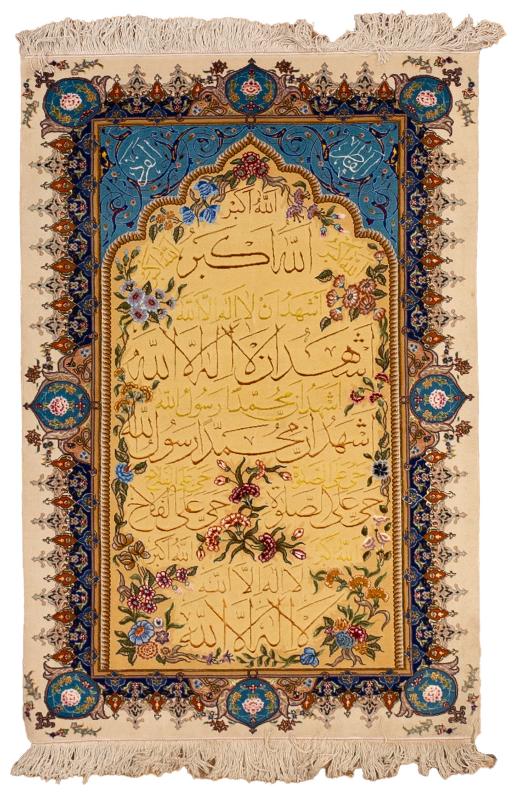 الله اكبر
الله اكبر
اشهد ان لا اله الا الله
اشهد ان لا اله الا الله
اشهد ان محمدا رسول الله
اشهد ان محمدا رسول الله
حي على الصلاة حي على الفلاح
حي على الصلاة حي على الفلاح
الله اكبر الله اكبر
لا اله الا الله
لا اله الا الله